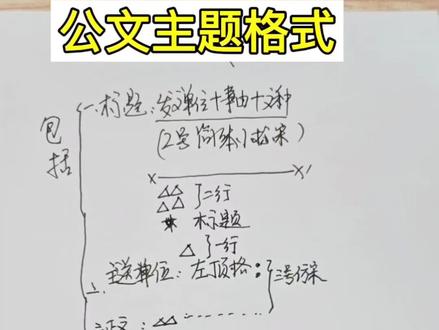 公文主题格式
包括
一.标题:发文单位+事由+文种
(2号简体小标宋)
x x
}二行
标题
}一行
二.主送单位:左顶格: }三号仿宋
三.正文: